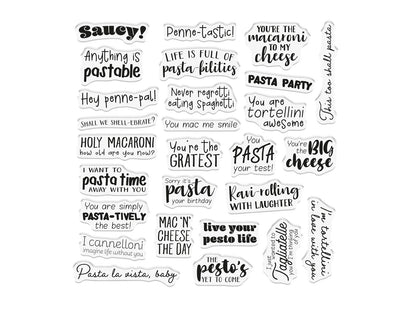 Saucy!
Anything is
pastable
Hey penne-pal!
SHALL WE SHELL-EBRATE?
HOLY MACARONI
how old are you now?
I WANT TO
pasta time
AWAY WITH YOU
You are simply
PASTA-TIVELY
the best!
I cannelloni
imagine life without you
Pasta la vista, baby
Penne-tastic!
LIFE IS FULL OF
pasta-bilities
Never regretti
eating spaghetti
You mac me smile
You're the
GRATEST
Sorry it's
pasta
your birthday
MAC 'N'
CHEESE
THE DAY
live your
pesto life
THE
pesto's
YET TO COME
YOU'RE THE
macaroni
TO MY
cheese
PASTA PARTY
You are
tortellini
awesome
You
PASTA
your test!
You're
the BIG
cheese
Ravi-rolling
WITH LAUGHTER
I just
wanted to
Tagliatelle
you I'm thinking
of you
I'm tortellini
in love with you
This too shall pasta